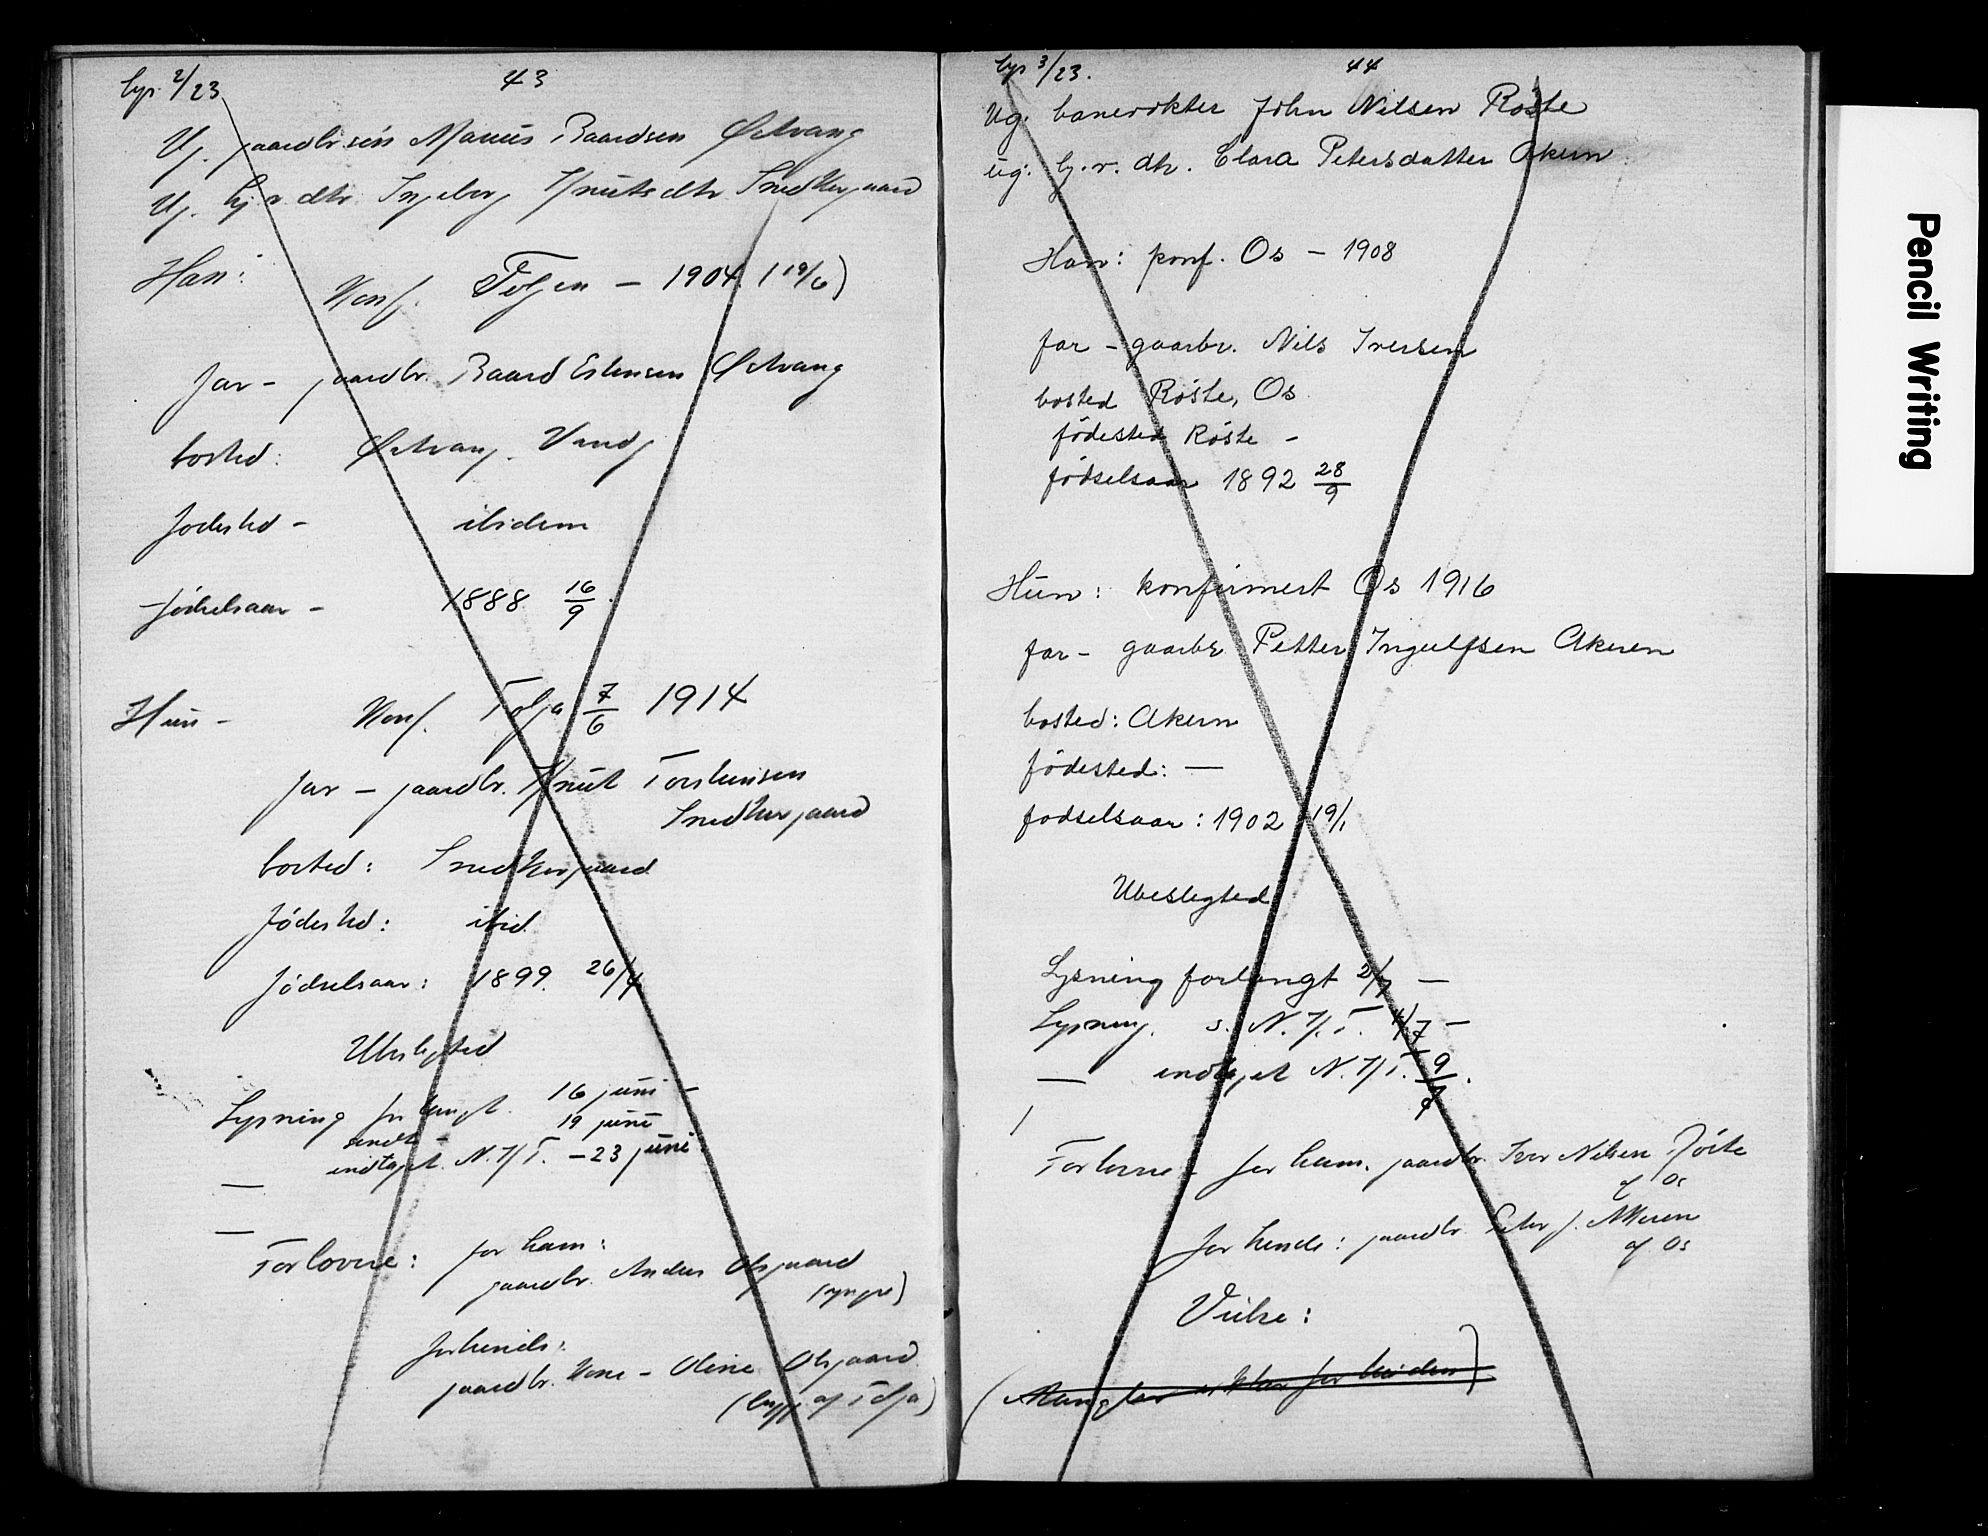 lys. 2/23
43
Ug. gaardbr.søn Marius Baardsen Østvang
Ug. hj.v. dtr. Ingeborg Knutsdtr. Snedkergaard
Han:
Konf. Tolgen – 1904 (19/6)
far – gaardbr. Baard Estensen Østvang
bosted: Østvang.
fødested – ibidem
fødselsaar – 1888 16/9.
Hun – Konf. Tolga 7/6 1914
far – gaardbr. Knut Torstensen
Snedkergaard
bosted: Snedkergaard
fødested: ibid.
fødselsaar: 1899. 26/4
Ubeslegted
Lysning forlangt. 16 juni –
sendt – 19 juni
indtaget. N.K.T. – 23 juni.
Forlovere: for ham:
gaardbr. Anders Olsgaard
(yngre)
for hende:
gaardbr. kone – Oline Olsgaard
(begge af Tolga)
lys 3/23.
44
Ug. banevokter John Nilsen Røste
ug: hj.v. dtr. Clara Petersdatter Akern
Han: konf. Os – 1908
far – gaarbr. Nils Iversen
bosted Røste, Os
fødested Røste –
fødselsaar 1892 28/9
Hun: konfirmert Os 1916
far – gaarbr Petter Ingulfsen Akeren
bosted: Akern
fødested: —
fodselsaar: 1902 19/1
Ubeslegted
Lysning forlangt 2/7 —
Lysning. s. N.K.T. 4/7 –
— indtaget N.K.T. 9/7.
Forlovere – for ham. gaardbr. Iver Nilsen Røste
af Os
for hende: gaardbr. Peter J. Akeren
af Os
Vielse:
(Mangler for hende)
Pencil Writing